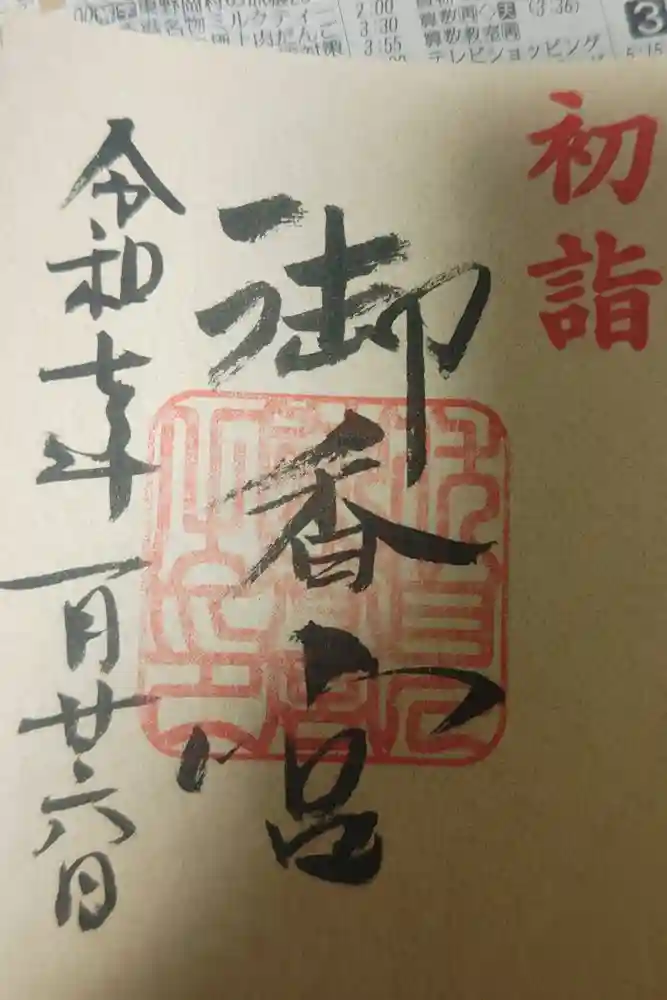 名物ミルクティー
2:00
3:30
3:55
(3:36)
算数教室再
テレビショッピング
3
5:15
初詣
御香宮
令和七年一月廿六日